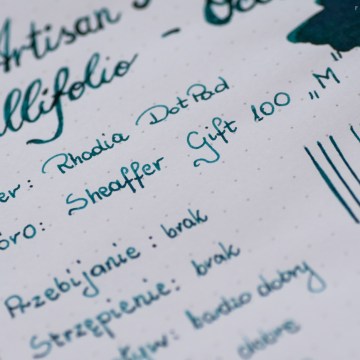 Artisan
llifolio - Oc
er: Rhodia DotPad
óro: Sheaffer Gift 100 „M"
Przebijanie: brak
Strzępienie: brak
ływ: bardzo dobry
dobre